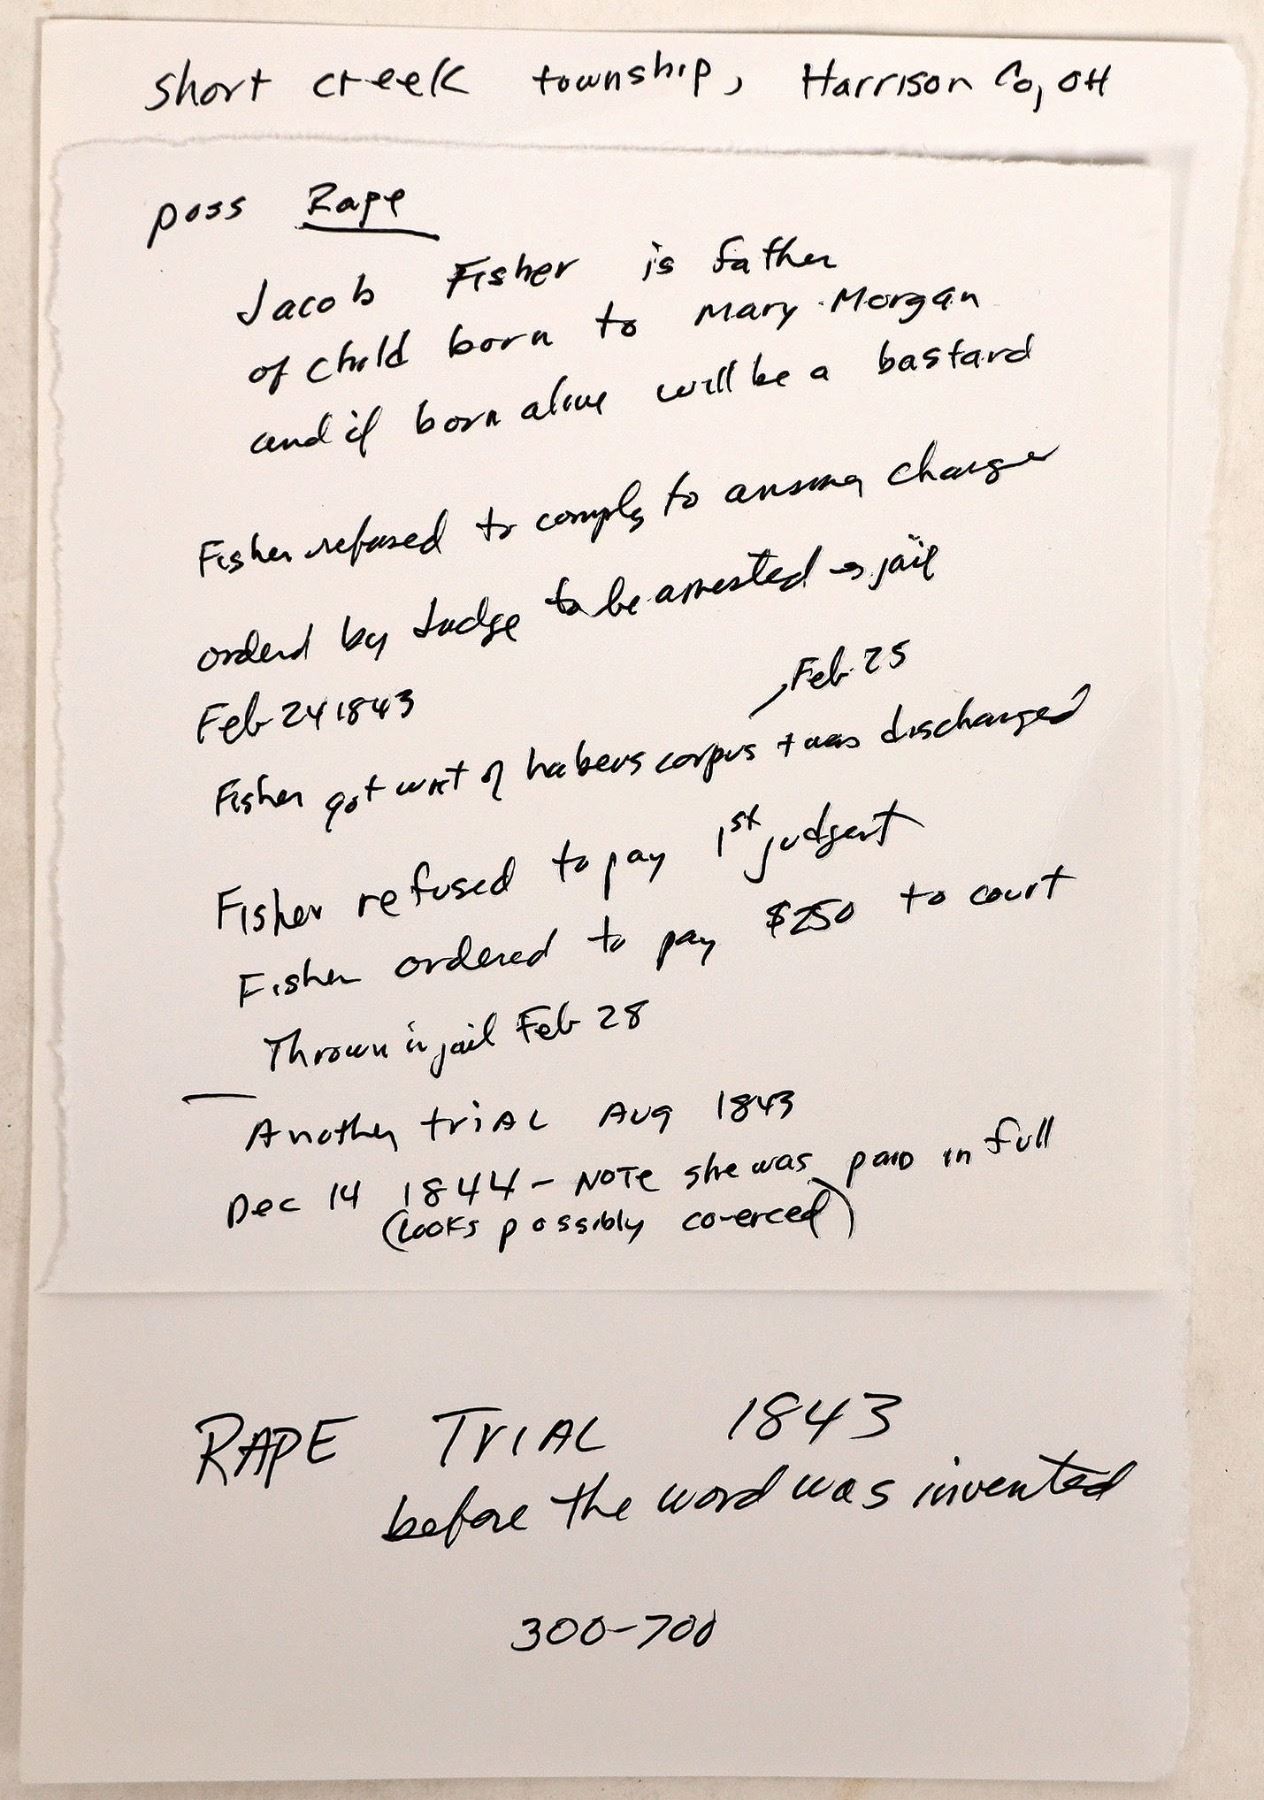 short creek township, Harrison Co, OH
poss Rape
Jacob Fisher is father
of child born to Mary Morgan
and if born alive will be a bastard
Fisher refused to comply to answer charges
orderd by Judge to be arrested → jail
Feb 24 1843
Feb 25
Fisher got writ of habeus corpus + was discharged
Fisher refused to pay 1st judgent
Fisher ordered to pay $250 to court
Thrown in jail Feb 28
Another triAL Aug 1843
Dec 14 1844 - NOTE she was paid in full
(Looks possibly co-erced)
RAPE TriAL 1843
before the word was invented
300-700